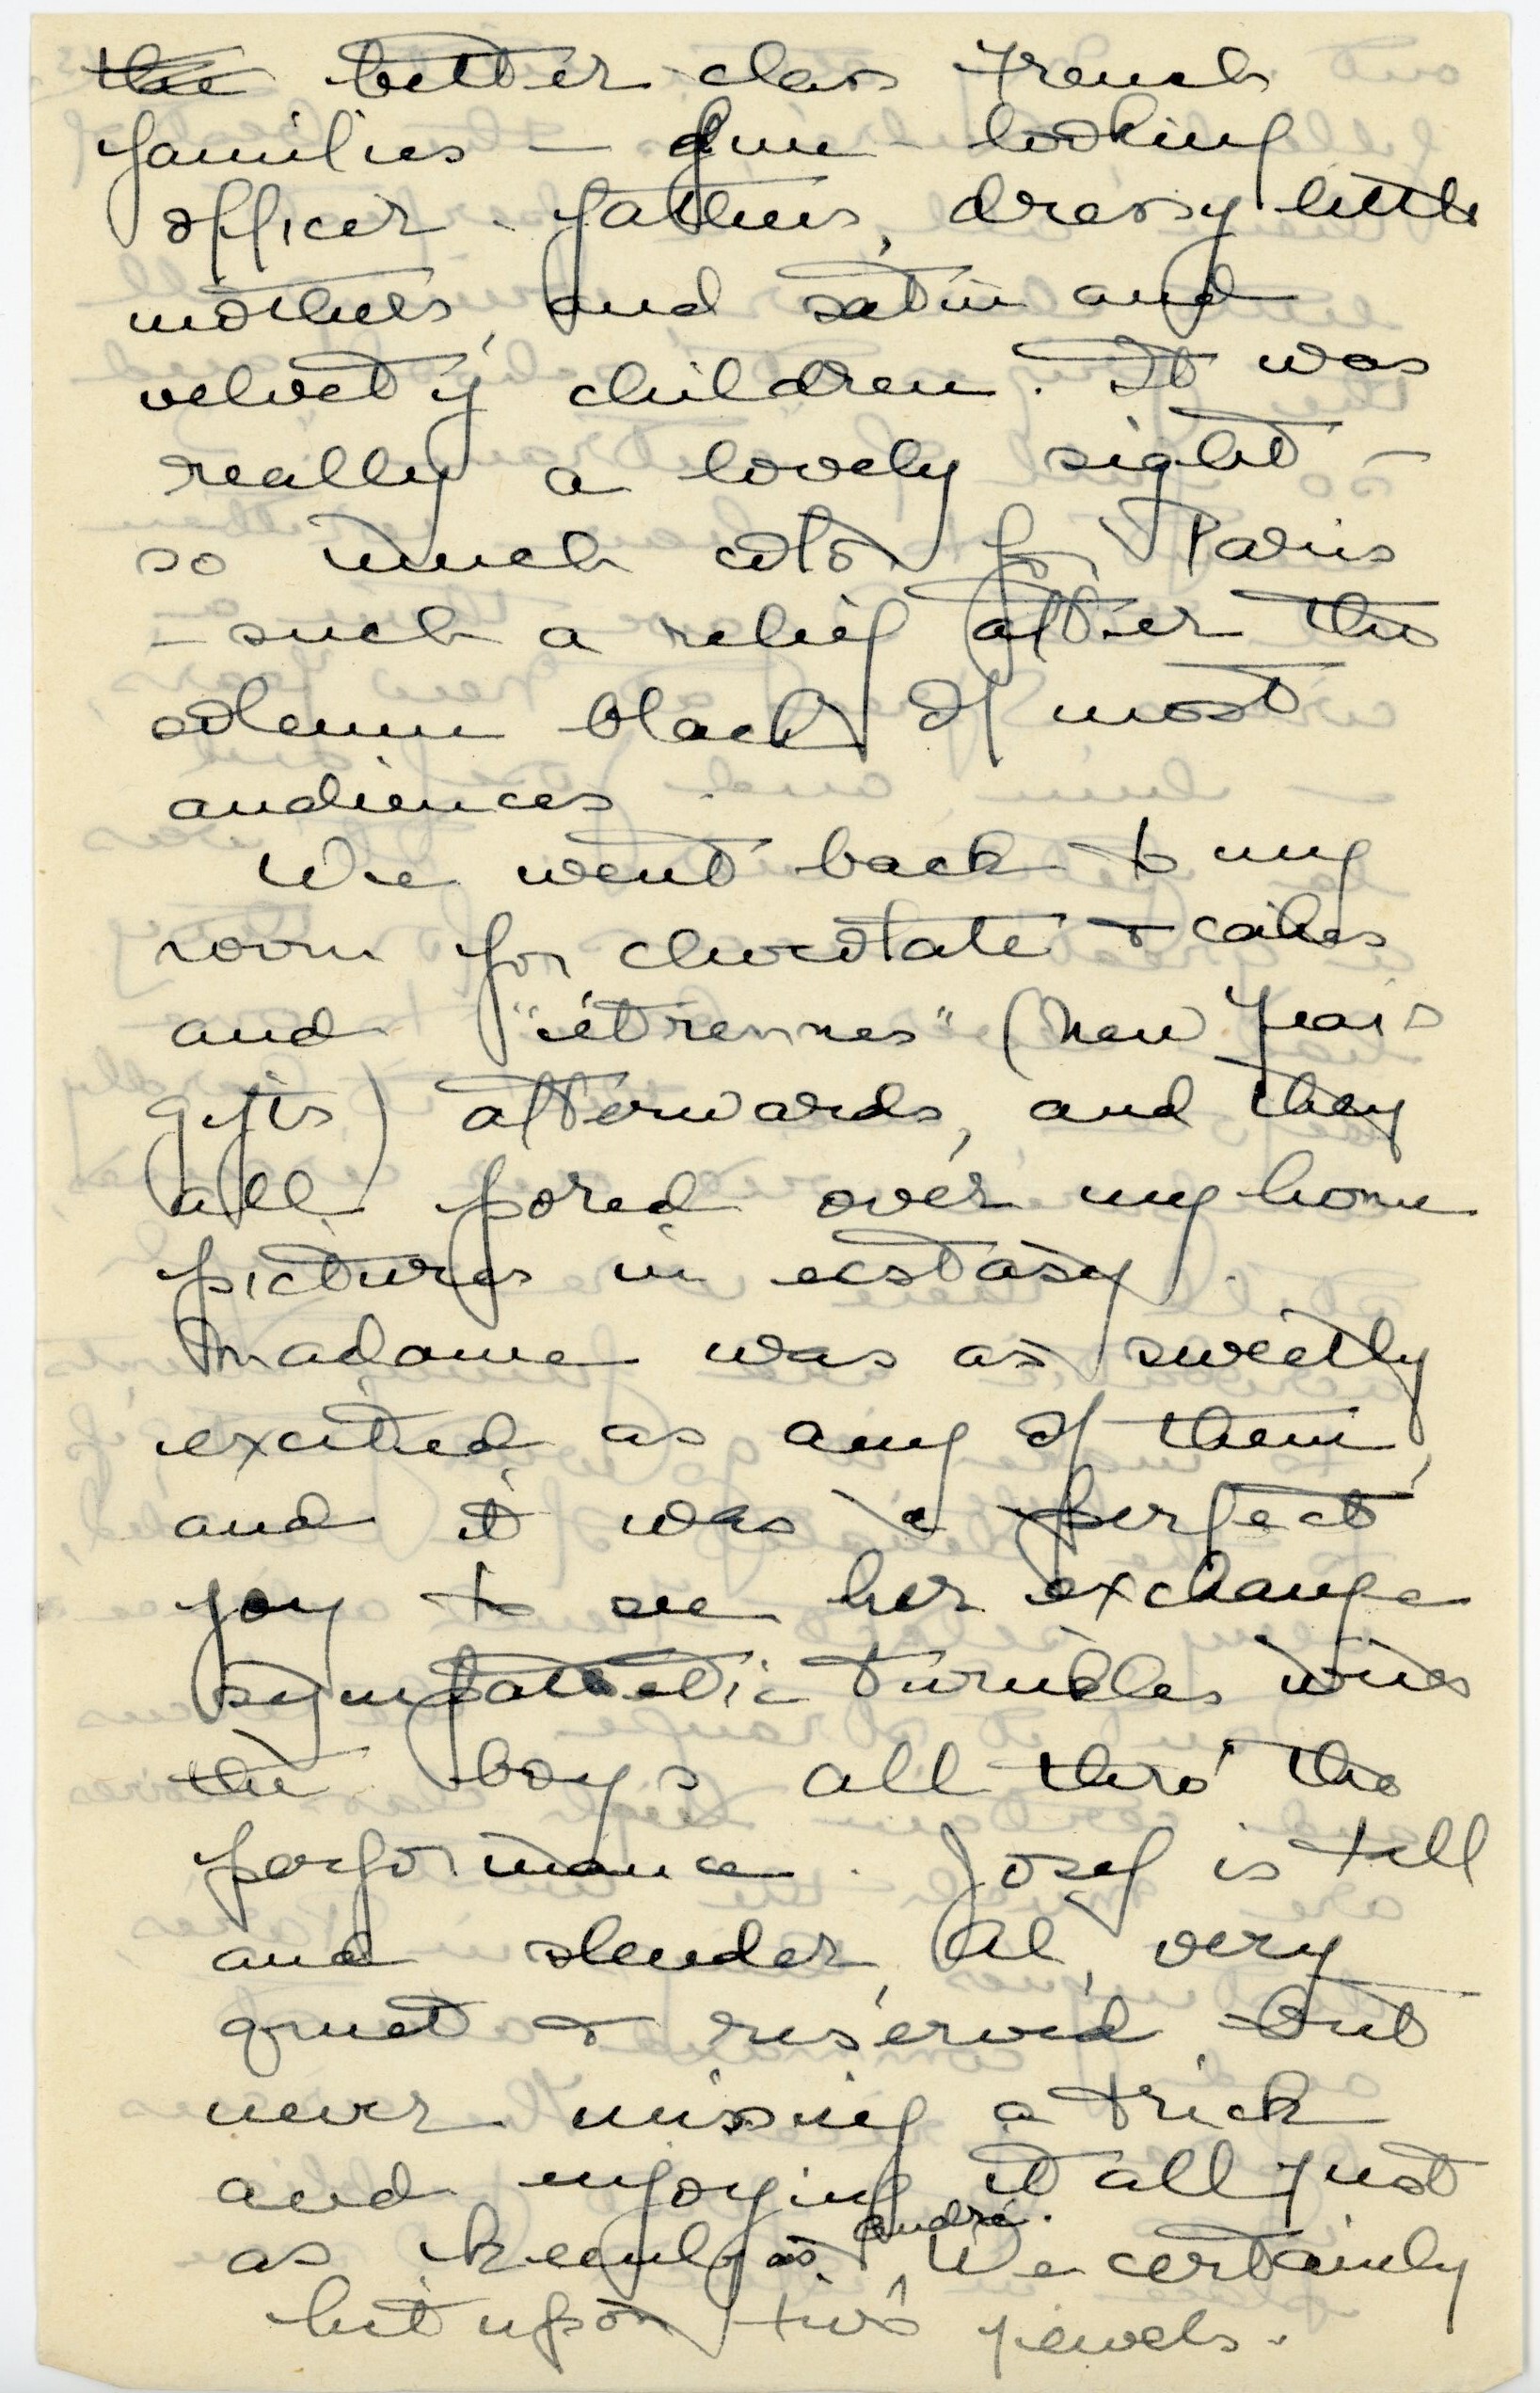 the better class French
families - fine looking
officer-fathers, dressy little
mothers, and satin and
velvety children. It was
really a lovely sight -
so much color for Paris
- such a relief after the
solemn black of most
audiences.
We went back to my
room for chocolate & cakes
and "étrennes" (New Year's
gifts) afterwards, and they
all pored over my home
pictures in ecstasy.
Madame was as sweetly
excited as any of them,
and it was a perfect
joy to see her exchange
sympathetic twinkles with
the boys all thro' the
performance. Josef is tall
and slender, Al, very
quiet & reserved but
never missing a trick
and enjoying it all just
as keenly as André. We certainly
hit upon two jewels.